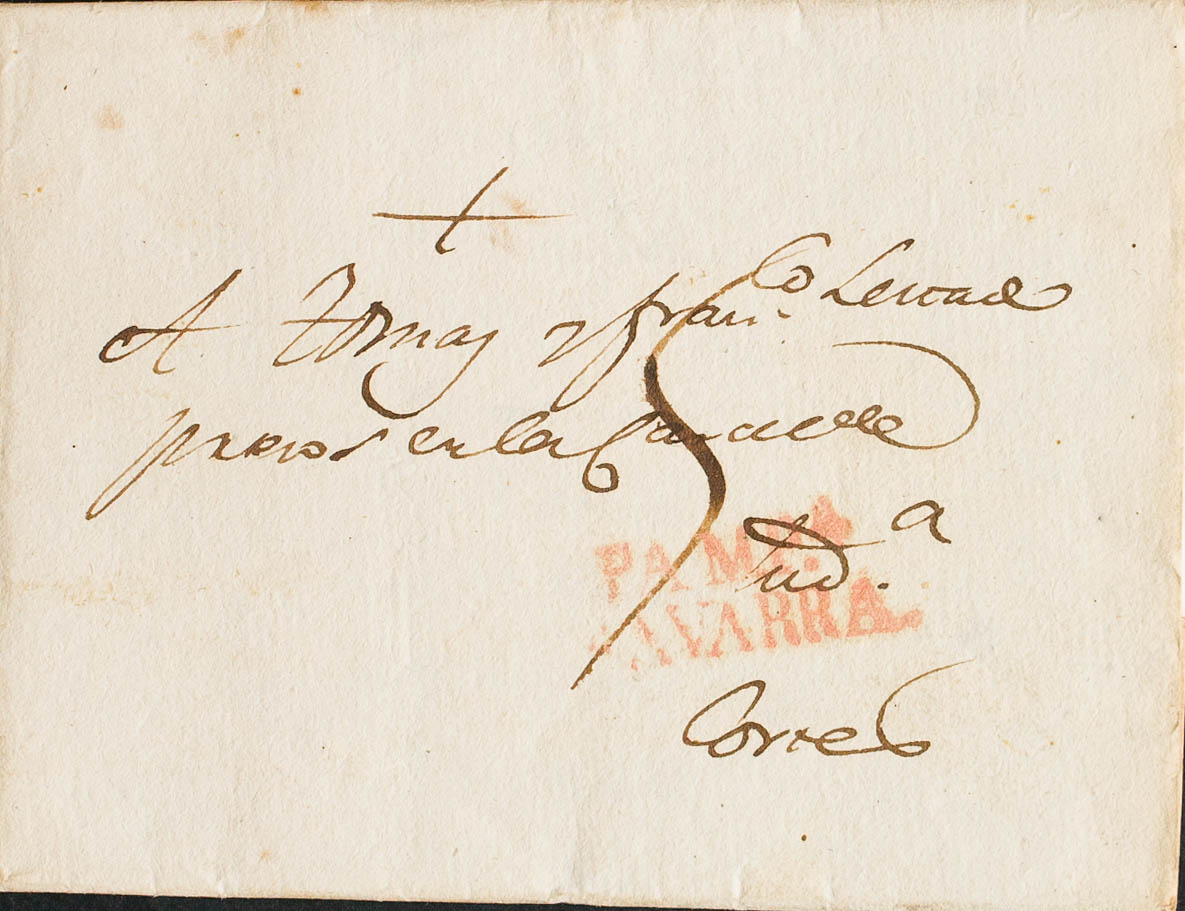 A Tomas y fran.co
presos en la Carcel de
Tud.a
PAMP.A
NAVARRA
Cortes